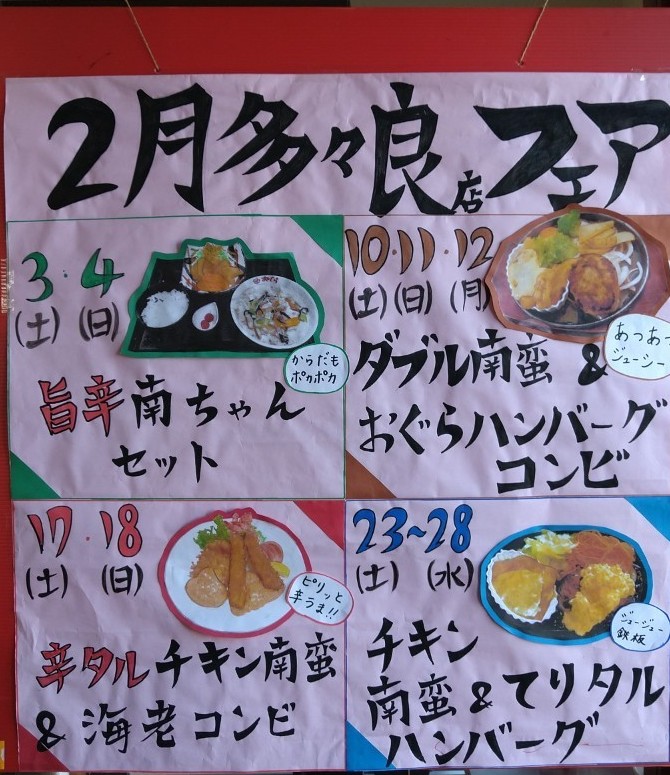 2月多々良店フェア
3・4
(土)(日)
からだも
ポカポカ
旨辛南ちゃん
セット
10・11・12
(土)(日)(月)
あつあつ
ジューシー
ダブル南蛮&
おぐらハンバーグ
コンビ
17・18
(土)(日)
ピリッと
辛うま!!
辛タルチキン南蛮
&海老コンビ
23~28
(土)(水)
ジュージュー
鉄板
チキン
南蛮&てりタル
ハンバーグ